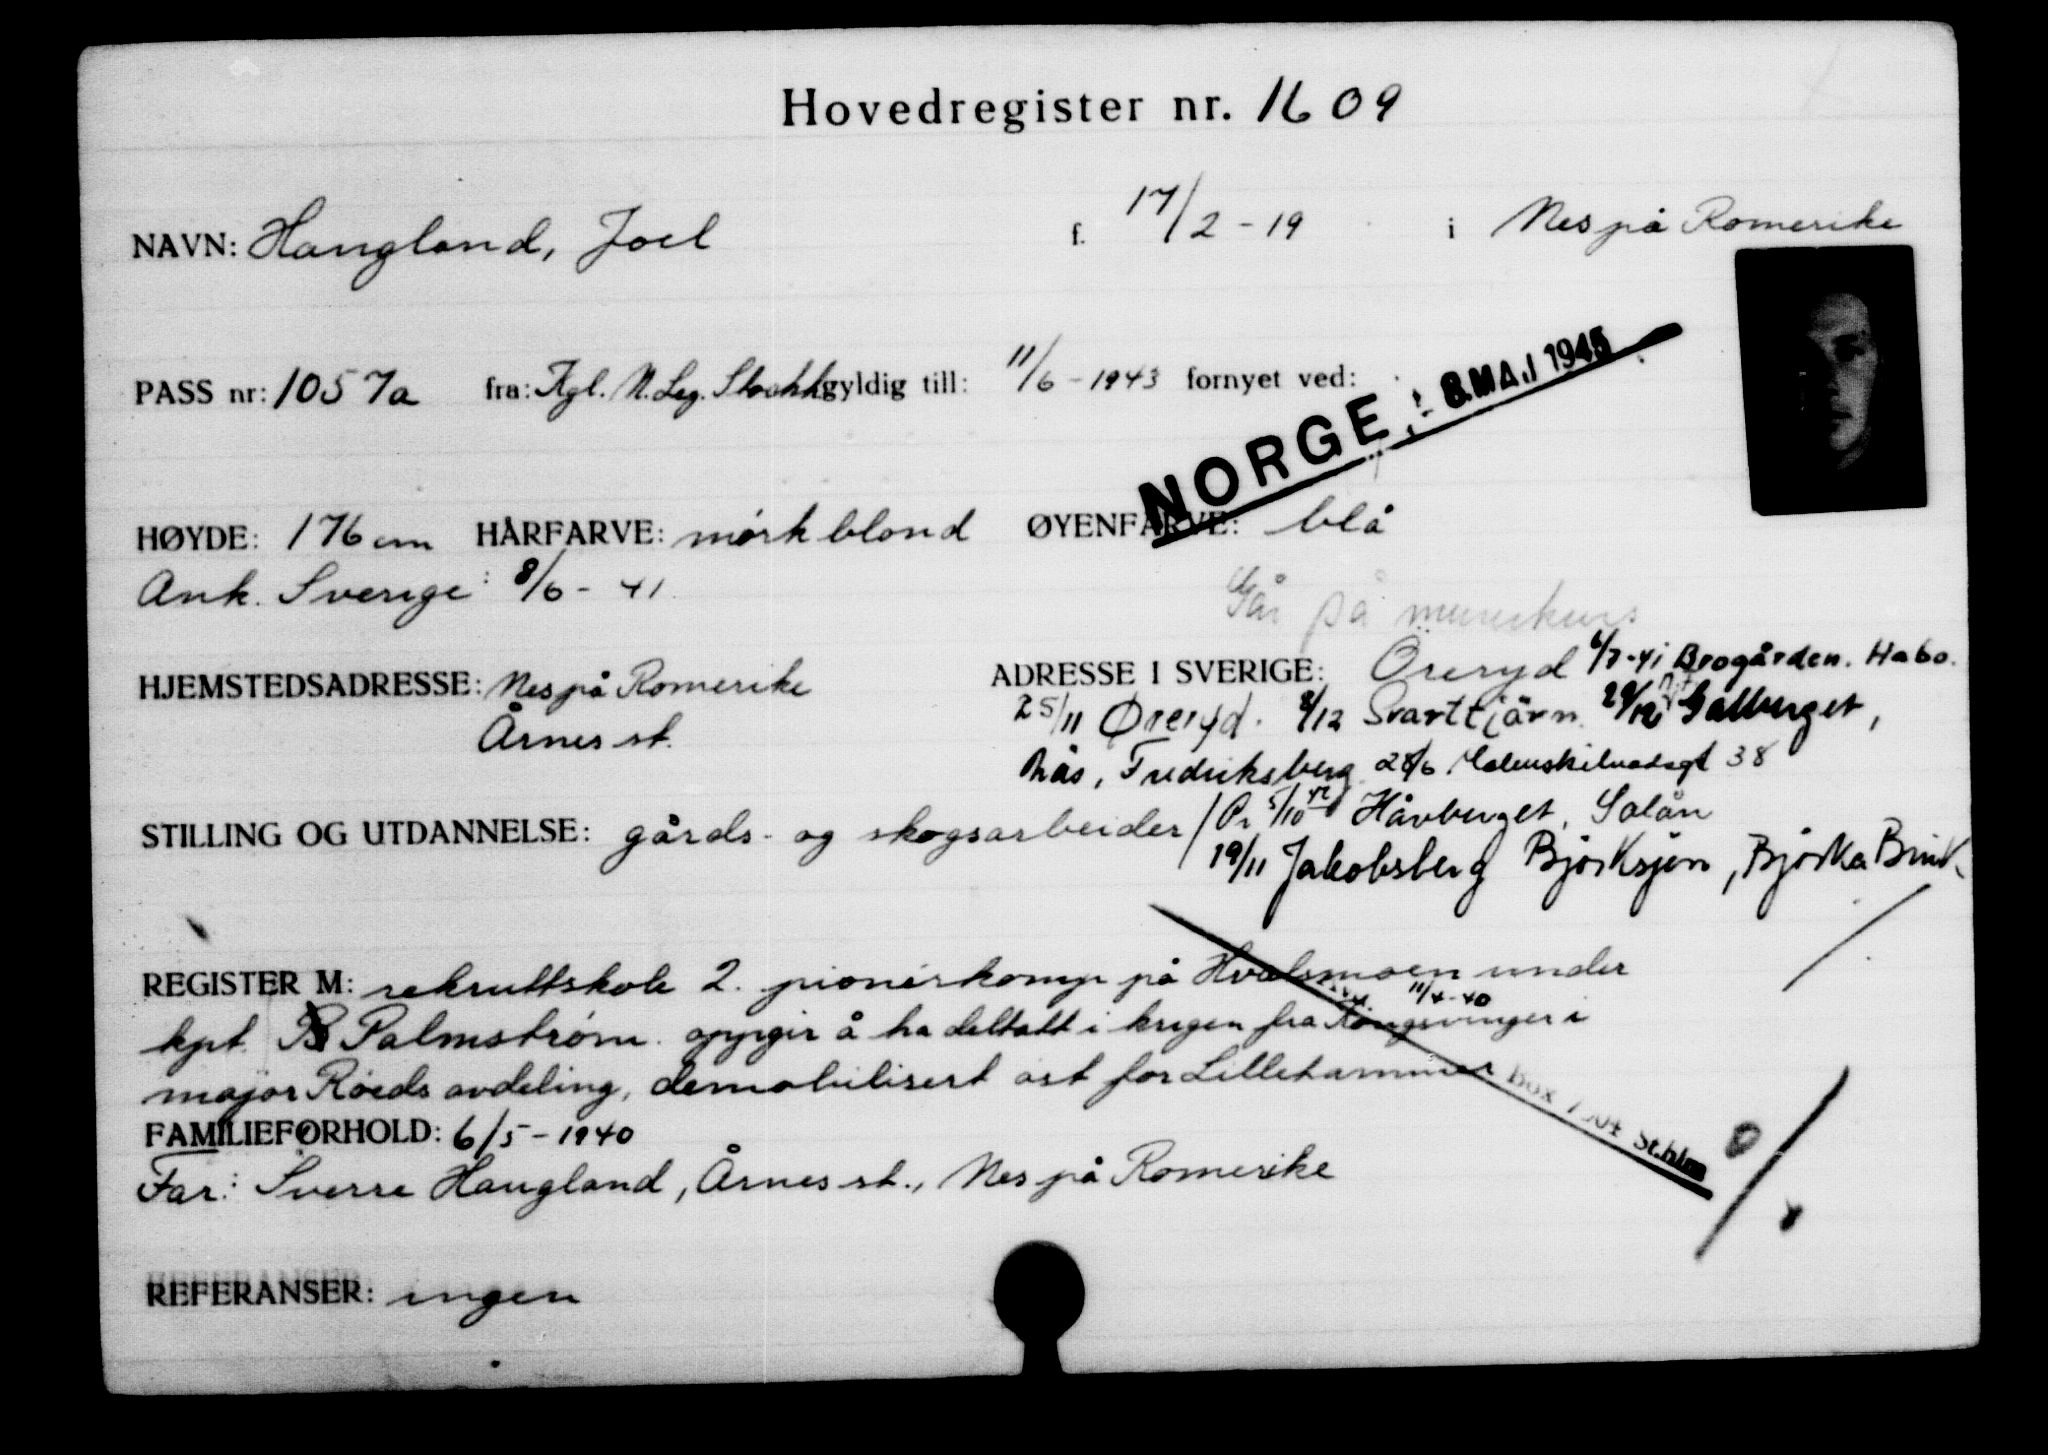 Hovedregister nr. 1609
NAVN: Haugland, Joel f. 17/2-19 i Nes på Romerike
PASS nr: 1057a fra: Kgl. N. Leg. Stockh gyldig till: 11/6-1943 fornyet ved:
NORGE 8. MAJ 1945
HØYDE: 176 cm HÅRFARVE: mørk blond ØYENFARVE: blå
Ank. Sverige: 8/6-41
Går på murerkurs
HJEMSTEDSADRESSE: Nes på Romerike ADRESSE I SVERIGE: Öreryd 6/7-41 Brogården. Habo.
Årnes st. 25/11 Øreryd. 8/12 Svarttjärn. 29/12
Nås, Fredriksberg 28/6 Malmskilnadsgt 38
STILLING OG UTDANNELSE: gårds- og skogsarbeider / Pr 5/10 42 Håvberget, Solån
19/11 Jakobsberg Bjørksjøn, Bjørka Bruk
REGISTER M: rekruttskole 2. pionérkomp på Hvalsmoen under
kpt. Palmstrøm. oppgir å ha deltatt i krigen fra Kongsvinger 11/4-40 i
major Røeds avdeling, demobilisert øst for Lillehammer
Box St.hlm
FAMILIEFORHOLD: 6/5-1940
Far: Sverre Haugland, Årnes st., Nes på Romerike
REFERANSER: ingen